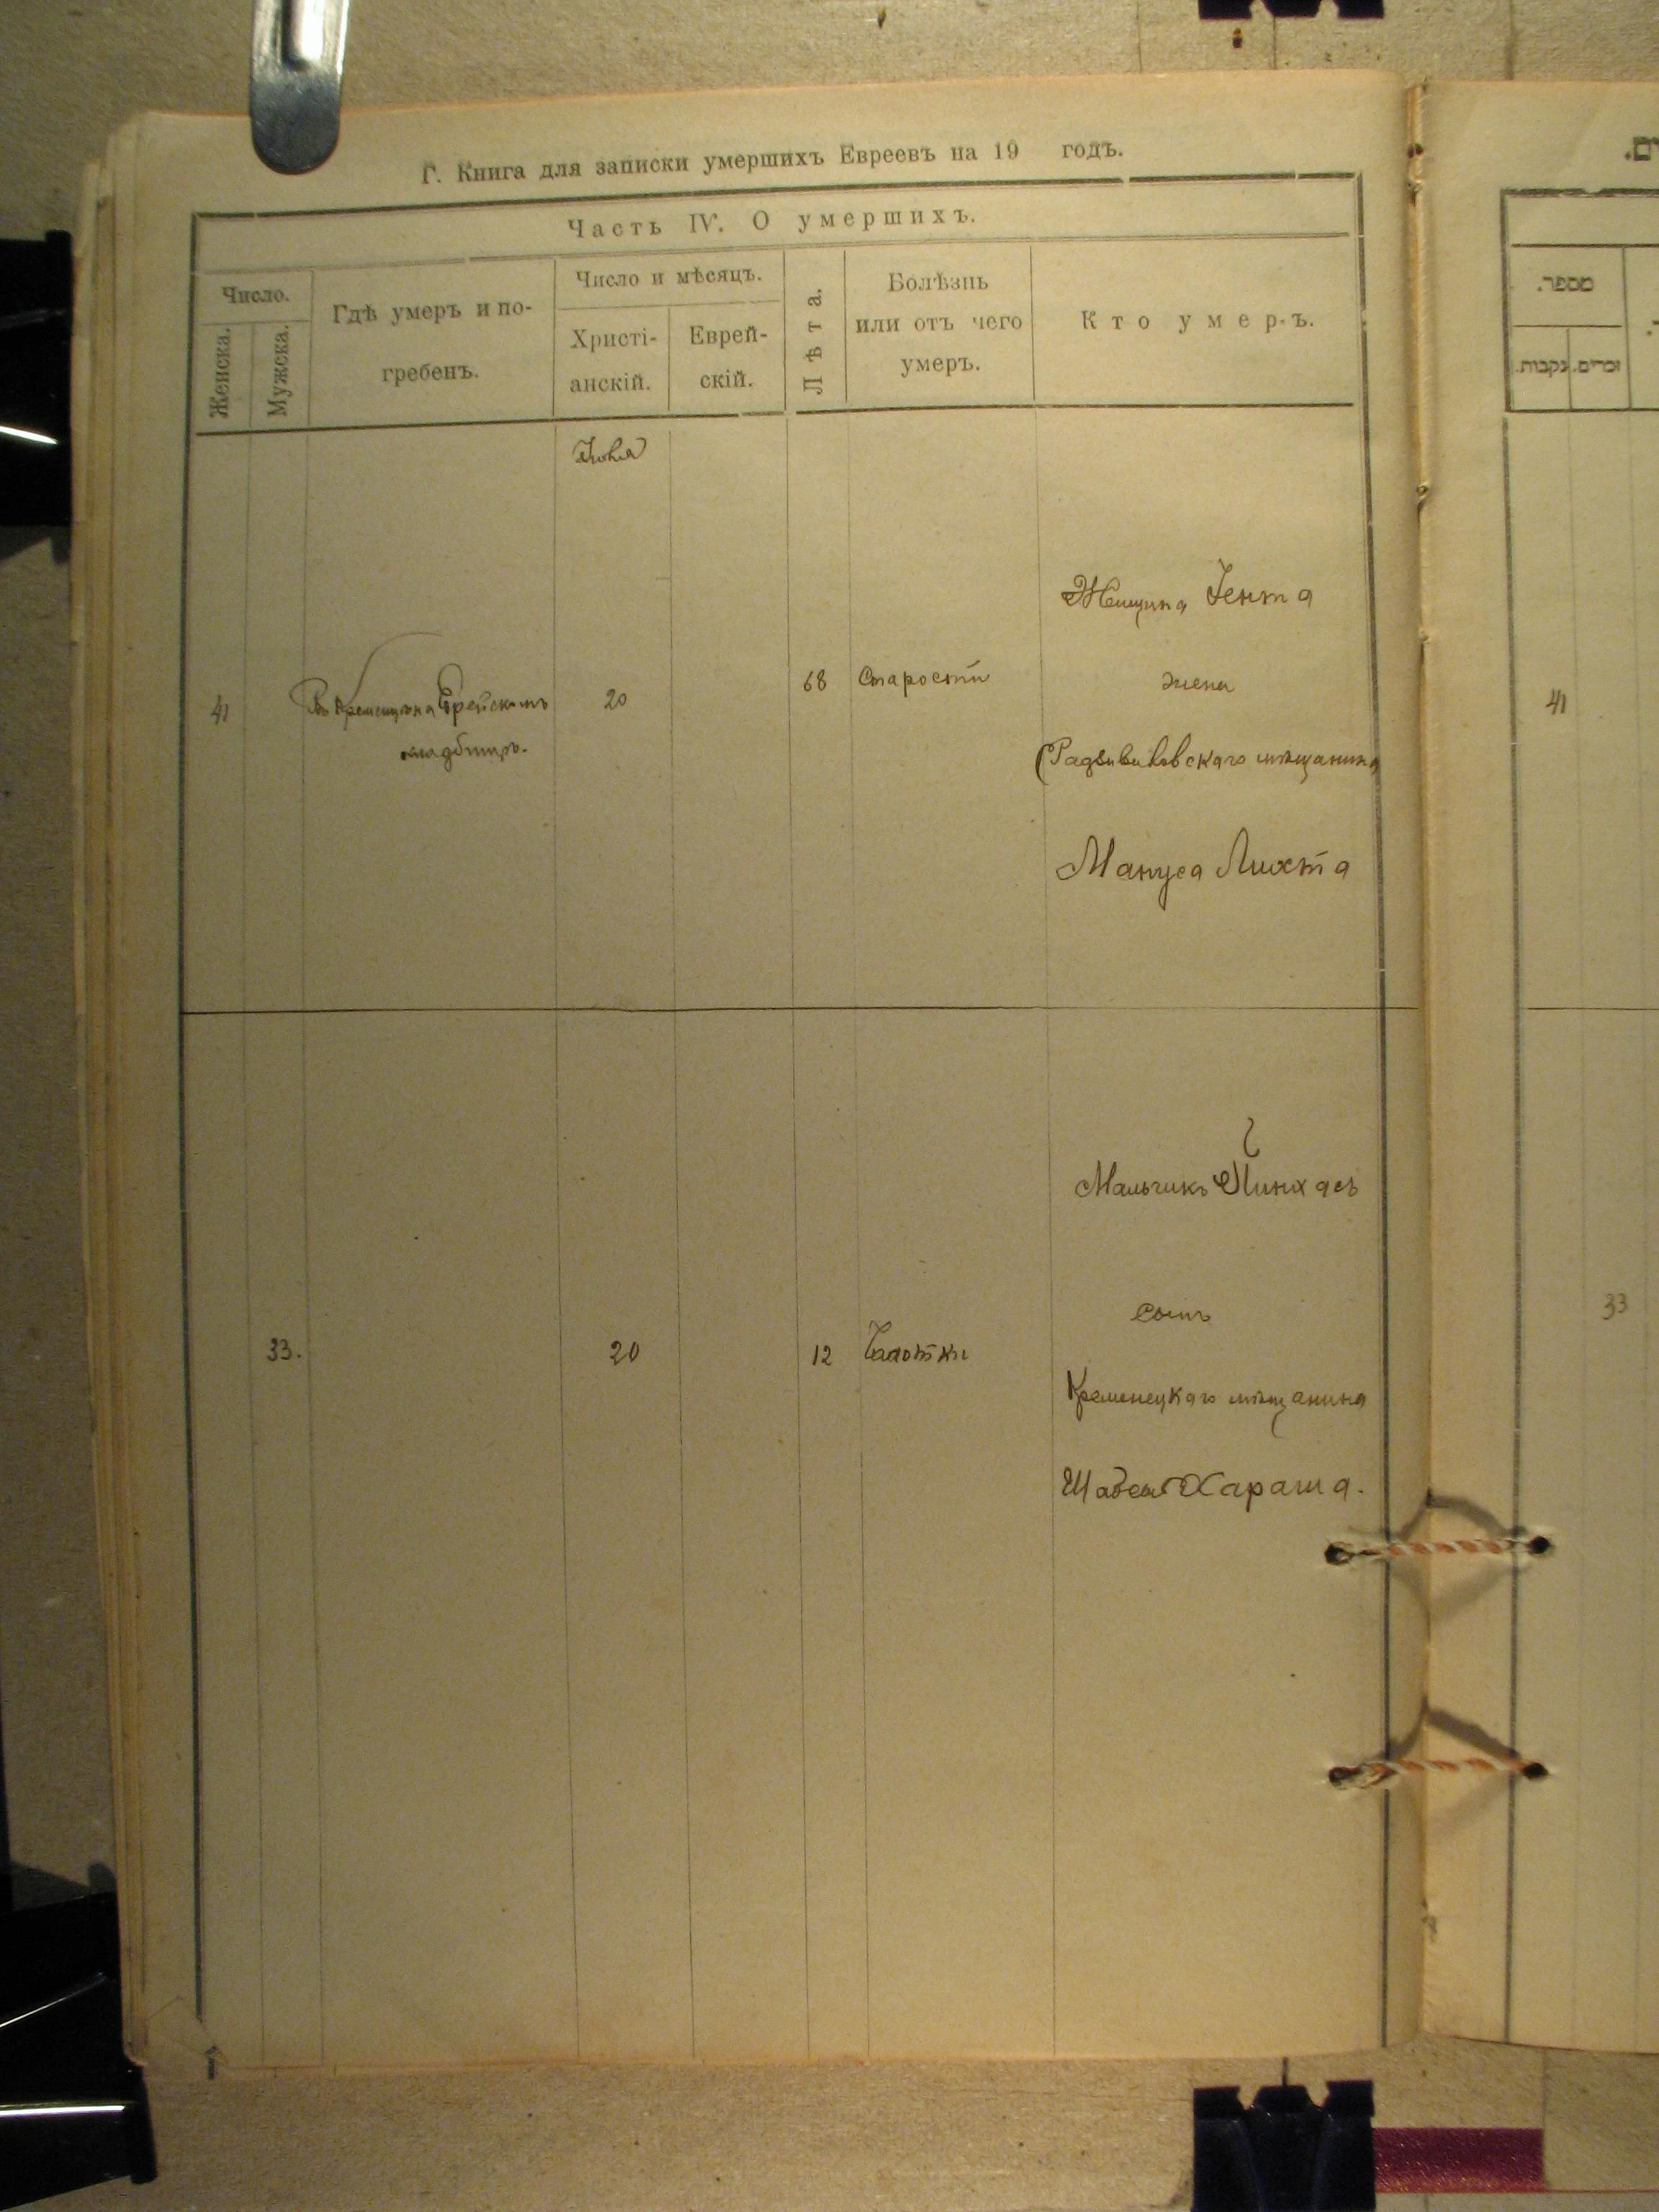 Г. Книга для записки умершихъ Евреевъ на 19 годъ.
Часть IV. О умершихъ.
Число.
Женска.
Мужска.
Гдѣ умеръ и по-
гребенъ.
Число и мѣсяцъ.
Христі-
анскій.
Еврей-
скій.
Лѣта.
Болѣзнь
или отъ чего
умеръ.
Кто умеръ.
41
20
68
Старости
Женщина Гента
жена
Радзивиловскаго мѣщанина
Мануса Лихта
33.
20
12
Чахотки
Мальчикъ Пинхасъ
сынъ
Кременецкаго мѣщанина
Хараша.
מספר.
זכרים.
נקבות.
41
33